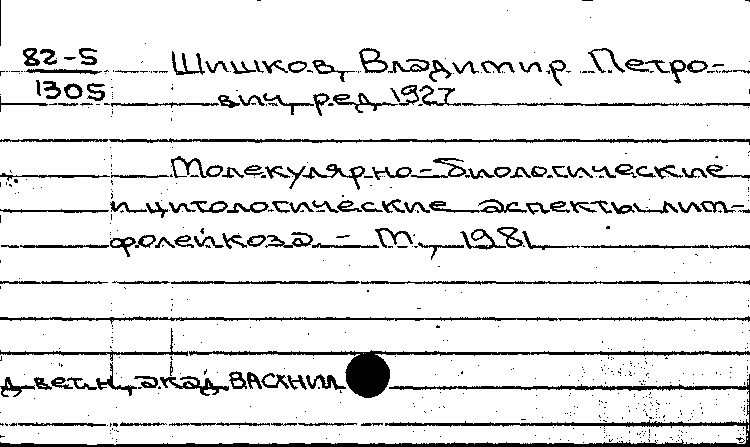 82-5
1305
Шишков, Владимир Петро-
вич, ред. 1927
Молекулярно-биологические
и цитологические аспекты лим-
фолейкоза. - М., 1981.
д. вет. н., акад. ВАСХНИЛ